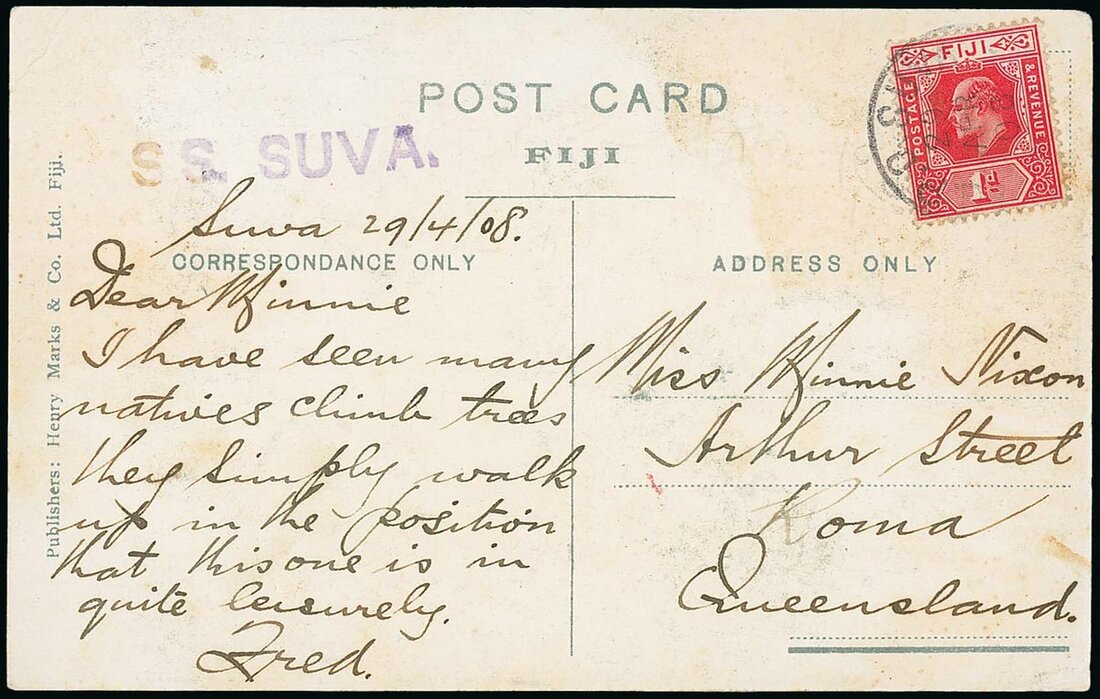 POST CARD
FIJI
S S. SUVA.
FIJI
POSTAGE
& REVENUE
1d
Publishers: Henry Marks & Co. Ltd. Fiji.
Suva 29/4/08.
CORRESPONDANCE ONLY
Dear Minnie
I have seen many
natives climb trees
they simply walk
up in the position
that this one is in
quite leisurely.
Fred.
ADDRESS ONLY
Miss Minnie Nixon
Arthur Street
Roma
Queensland.